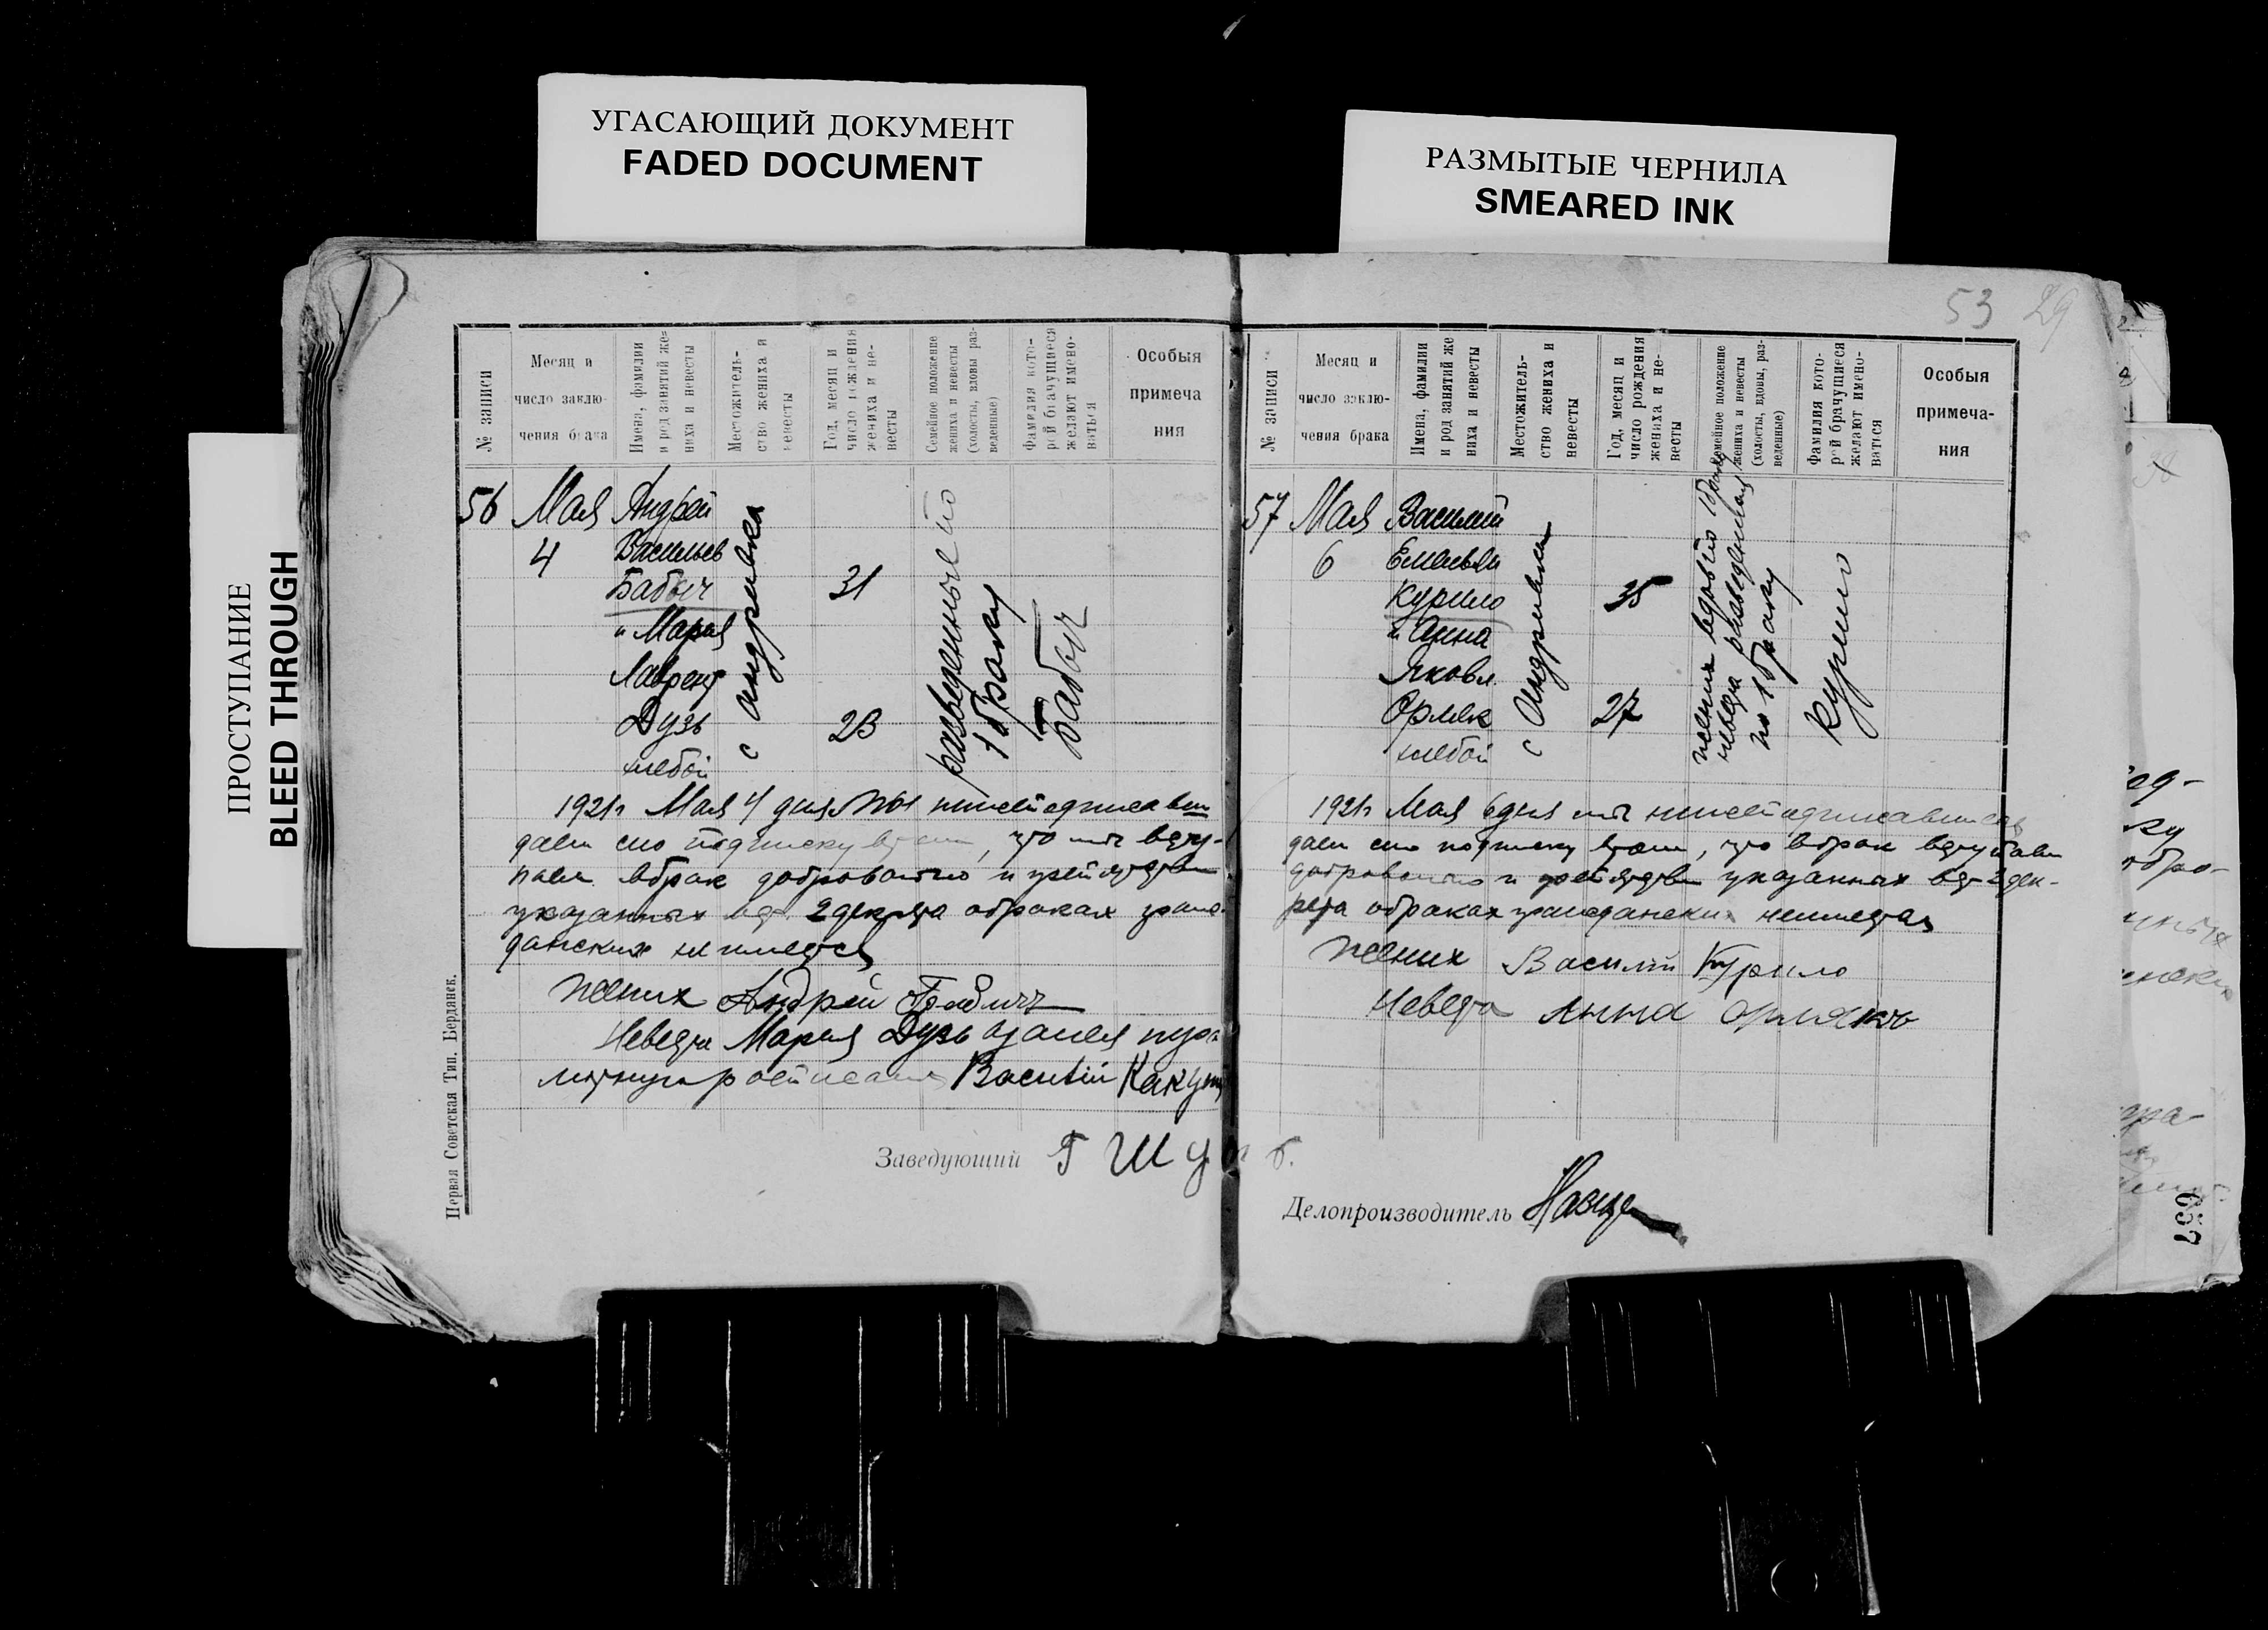 УГАСАЮЩИЙ ДОКУМЕНТ
FADED DOCUMENT
РАЗМЫТЫЕ ЧЕРНИЛА
SMEARED INK
ПРОСТУПАНИЕ
BLEED THROUGH
53 29
№ записи
Месяц и
число заклю-
чения брака
Имена, фамилии
и род занятий же-
ниха и невесты
Местожитель-
ство жениха и
невесты
Год, месяц и
число рождения
жениха и не-
весты
Семейное положение
жениха и невесты
(холосты, вдовы, раз-
веденные)
Фамилия кото-
рой брачущиеся
желают имено-
ваться
Особыя
примеча
ния
56 Мая Андрей
4 Васильев
Бабыч 31
" Мария
Лаврент
Дузь 23
хлебоп
с Андривка
разведенные по
1 браку
Бабыч
1921г Мая 4 дня мы нижеподписавш
даем сию подписку в том, что мы всту-
паем в брак добровольно и препятствий
указанных в ст. 2 декрета о браках граж-
данских не имеется
Жених Андрей Бабыч
Невеста Мария Дузь а за нея негра
мотную расписался Василий
Заведующий Г Шу
Первая Советская Тип. Бердянск.
№ записи
Месяц и
число заклю-
чения брака
Имена, фамилии
и род занятий же
ниха и невесты
Местожитель-
ство жениха и
невесты
Год, месяц и
число рождения
жениха и не-
весты
Семейное положение
жениха и невесты
(холосты, вдовы, раз-
веденные)
Фамилия кото-
рой брачущиеся
желают имено-
ваться
Особыя
примеча-
ния
57 Мая Василий
6 Емельян
Курило 35
" Анна
Яковл.
Орляк 27
хлебоп
с Андривка
жених вдов по 1 браку
невеста разведенная
по 1 браку
Курило
1921г Мая 6 дня мы нижеподписавшиеся
даем сию подписку в том, что в брак вступаем
добровольно и препятствий указанных в ст 2 дек-
рета о браках гражданских не имеется
Жених Василий Курило
Невеста Анна Орлякъ
Делопроизводитель
657